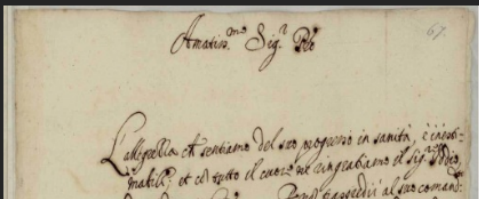 67.
Amatiss.mo Sig.r Pre
L'allegrezza ch sentiamo del suo progresso in sanità, è inesti=
mabile; et co'l tutto il cuore ne ringratiamo il Sig.r Iddio,
al suo comand: